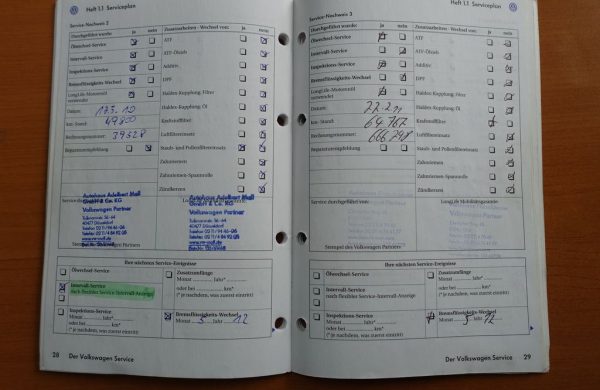 Heft 1.1 Serviceplan
Service-Nachweis 2
Durchgeführt wurde: Ja nein
Zusatzarbeiten - Wechsel von: ja nein
Ölwechsel-Service
ATF
Intervall-Service
ATF-Ölsieb
Inspektions-Service
Additiv
Bremsflüssigkeits-Wechsel
DPF
LongLife-Motorenöl verwendet
Haldex-Kupplung: Filter
Datum: 17.3.10
Haldex-Kupplung: Öl
km-Stand: 49800
Kraftstofffilter
Rechnungsnummer: 39528
Luftfiltereinsatz
Reparaturempfehlung
Staub- und Pollenfiltereinsatz
Zahnriemen
Zahnriemen-Spannrolle
Zündkerzen
Autohaus Adelbert Moll
GmbH & Co. KG
Volkswagen Partner
40477 Düsseldorf
Ihre nächsten Service-Ereignisse
Ölwechsel-Service
Zusatzumfänge
Monat Jahr*
oder bei km*
(* je nachdem, was zuerst eintritt)
Intervall-Service
nach flexibler Service-Intervall-Anzeige
Inspektions-Service
Monat Jahr*
oder bei km*
(* je nachdem, was zuerst eintritt)
Bremsflüssigkeits-Wechsel
Monat 5 Jahr 12
28 Der Volkswagen Service
Heft 1.1 Serviceplan
Service-Nachweis 3
Durchgeführt wurde: ja nein
Zusatzarbeiten - Wechsel von: ja nein
Ölwechsel-Service
ATF
Intervall-Service
ATF-Ölsieb
Inspektions-Service
Additiv
Bremsflüssigkeits-Wechsel
DPF
LongLife-Motorenöl verwendet
Haldex-Kupplung: Filter
Datum: 22.2.11
Haldex-Kupplung: Öl
km-Stand: 64.767
Kraftstofffilter
Rechnungsnummer: 666298
Luftfiltereinsatz
Reparaturempfehlung
Staub- und Pollenfiltereinsatz
Zahnriemen
Zahnriemen-Spannrolle
Zündkerzen
Service durchgeführt von:
LongLife Mobilitätsgarantie
Stempel des Volkswagen Partners
Ihre nächsten Service-Ereignisse
Ölwechsel-Service
Zusatzumfänge
Monat Jahr*
oder bei km*
(* je nachdem, was zuerst eintritt)
Intervall-Service
nach flexibler Service-Intervall-Anzeige
Inspektions-Service
Monat Jahr*
oder bei km*
(* je nachdem, was zuerst eintritt)
Bremsflüssigkeits-Wechsel
Monat 5 Jahr 12
Der Volkswagen Service 29